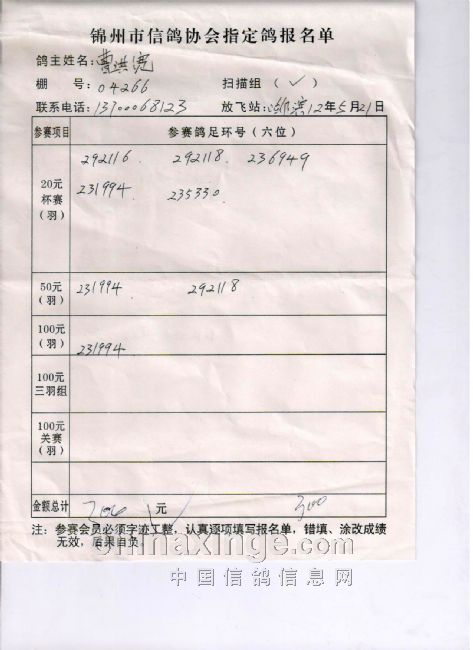 锦州市信鸽协会指定鸽报名单
鸽主姓名: 曹洪宽
棚 号: 04266 扫描组 (✓)
联系电话: 13700068123 放飞站: 12年5月21日
参赛项目 参赛鸽足环号(六位)
20元
杯赛
(羽)
292116. 292118. 236949
231994 235330.
50元
(羽)
231994 292118
100元
(羽)
231994
100元
三羽组
100元
关赛
(羽)
金额总计 200 元 300
注: 参赛会员必须字迹工整,认真逐项填写报名单,错填、涂改成绩
无效,后果自负。
chinaxinge.com
中国信鸽信息网